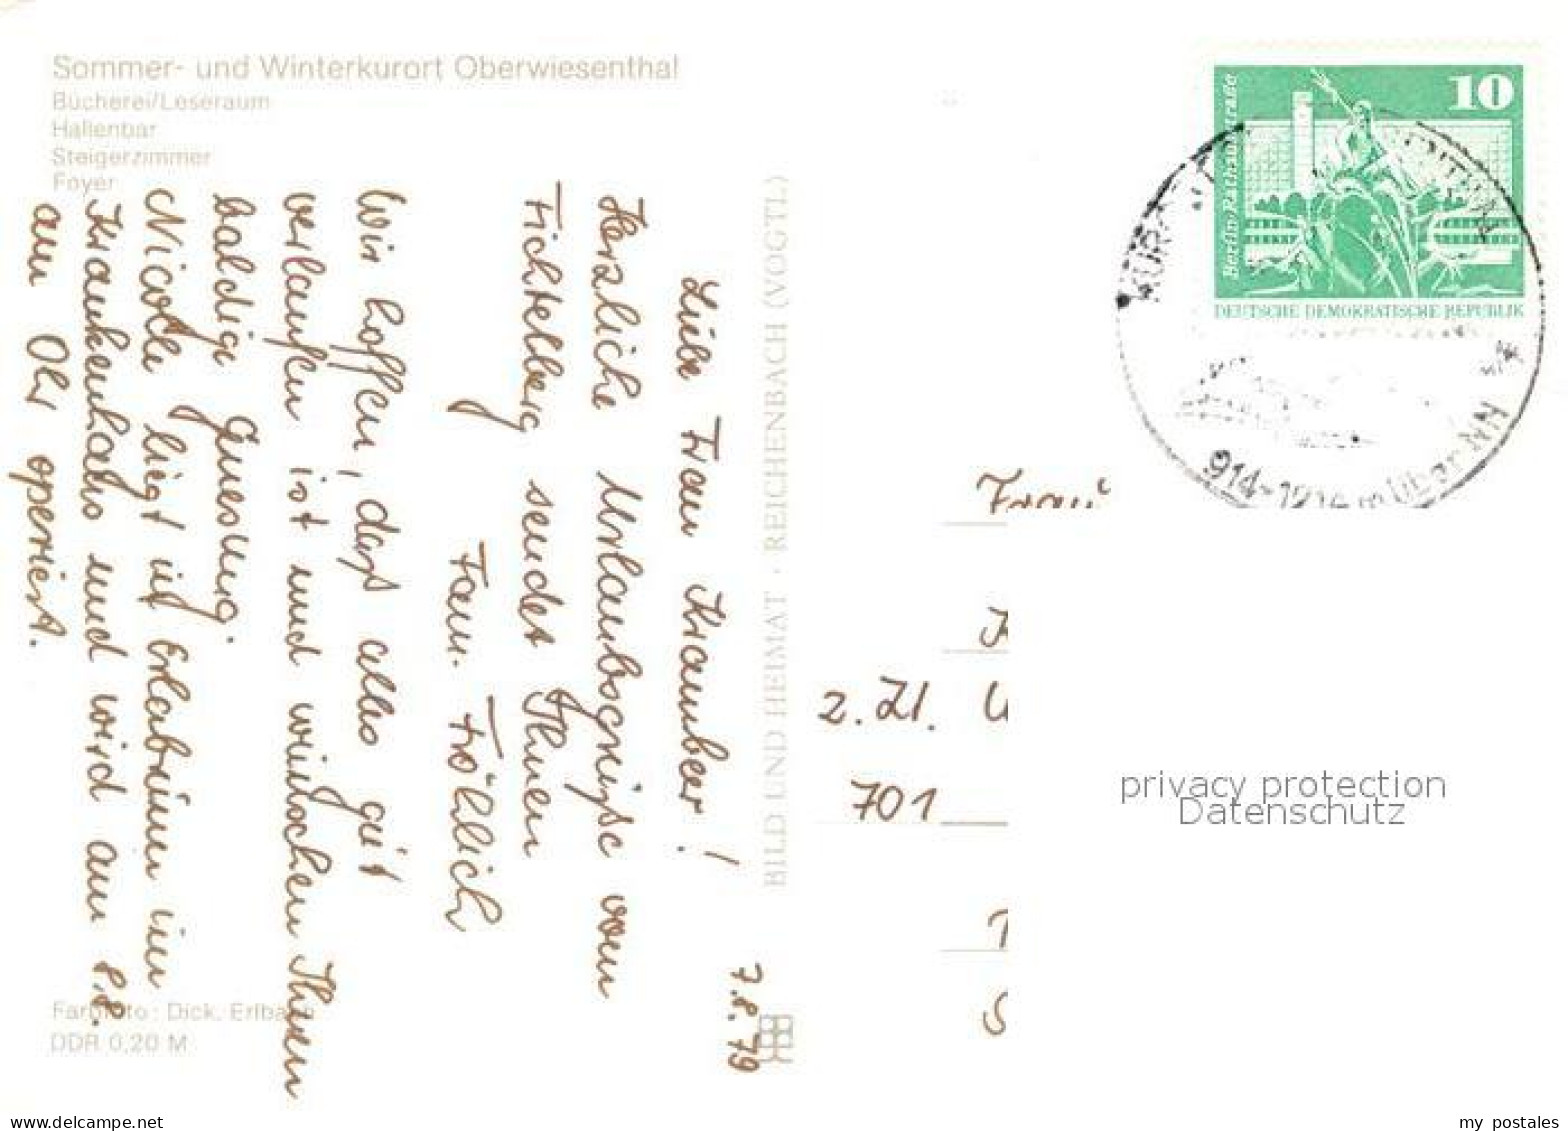 Sommer- und Winterkurort Oberwiesenthal
Bücherei/Leseraum
Hallenbar
Steigerzimmer
Foyer
7.8.79
Liebe Frau Krambeer!
Herzliche Urlaubsgrüße vom
Fichtelberg sendet Ihnen
Fam. Fröhlich
Wir hoffen, daß alles gut
verlaufen ist und wünschen Ihnen
baldige Genesung.
Nicole liegt in Erlabrunn im
Krankenhaus und wird am 8.8.
am Ohr operiert.
Farbfoto: Dick, Erlbach
DDR 0,20 M
BILD UND HEIMAT · REICHENBACH (VOGTL.)
10
Berlin-Rathausstraße
DEUTSCHE DEMOKRATISCHE REPUBLIK
914-1214 m über NN
Frau
2. Zl.
701
privacy protection
Datenschutz
my postales